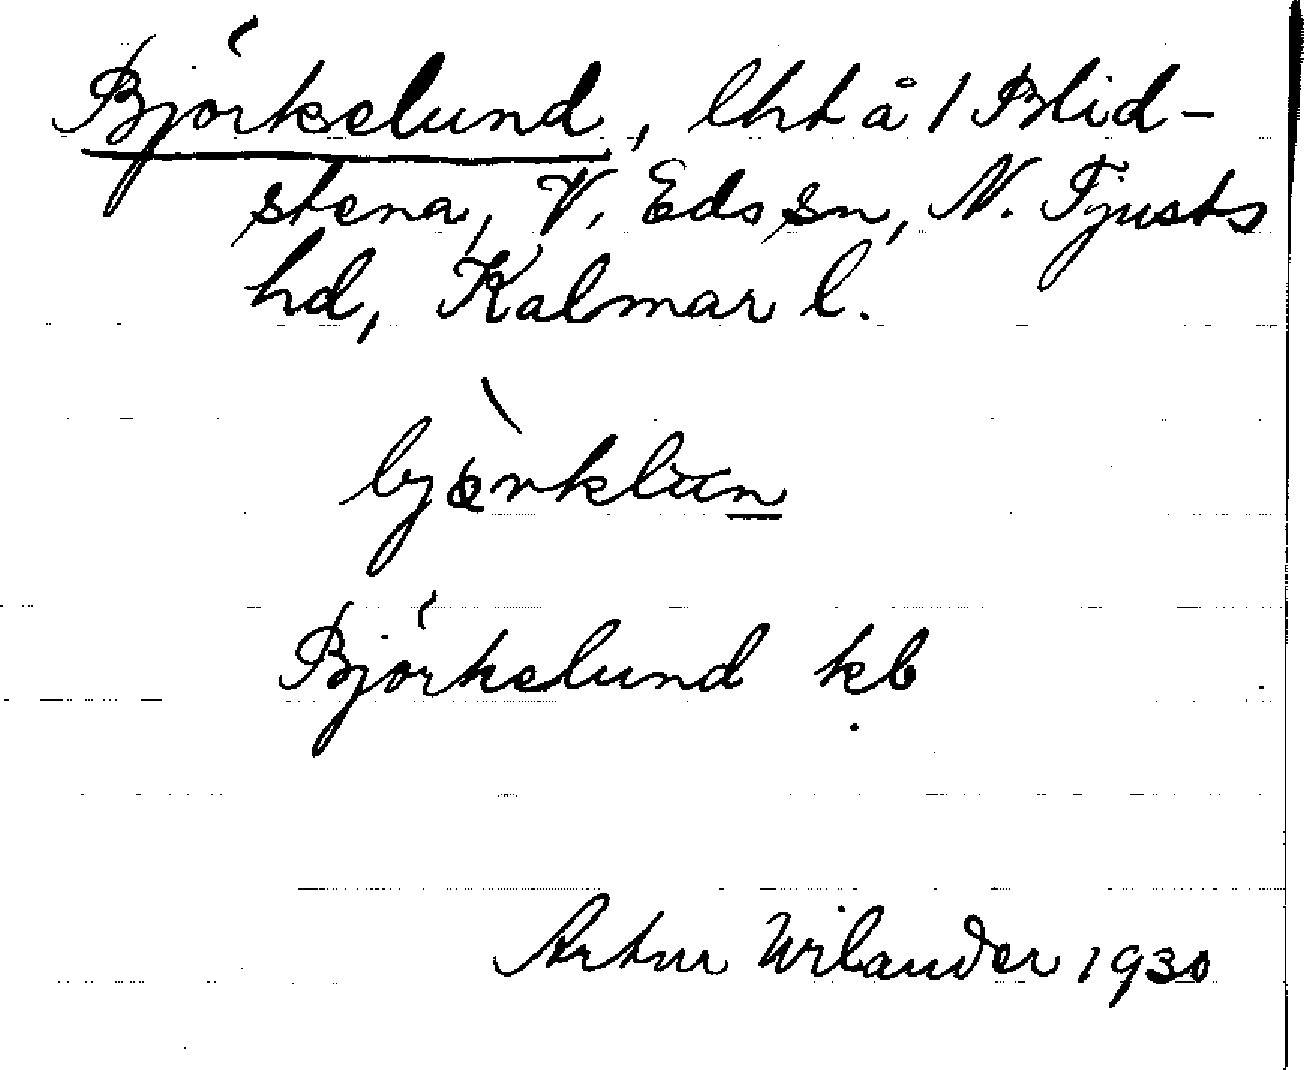 Björkelund, lht å 1 Blid-
stena, V. Eds sn, N. Tjusts
hd, Kalmar l.
bjòrklun
Björkelund kb
Artur Wilander 1930